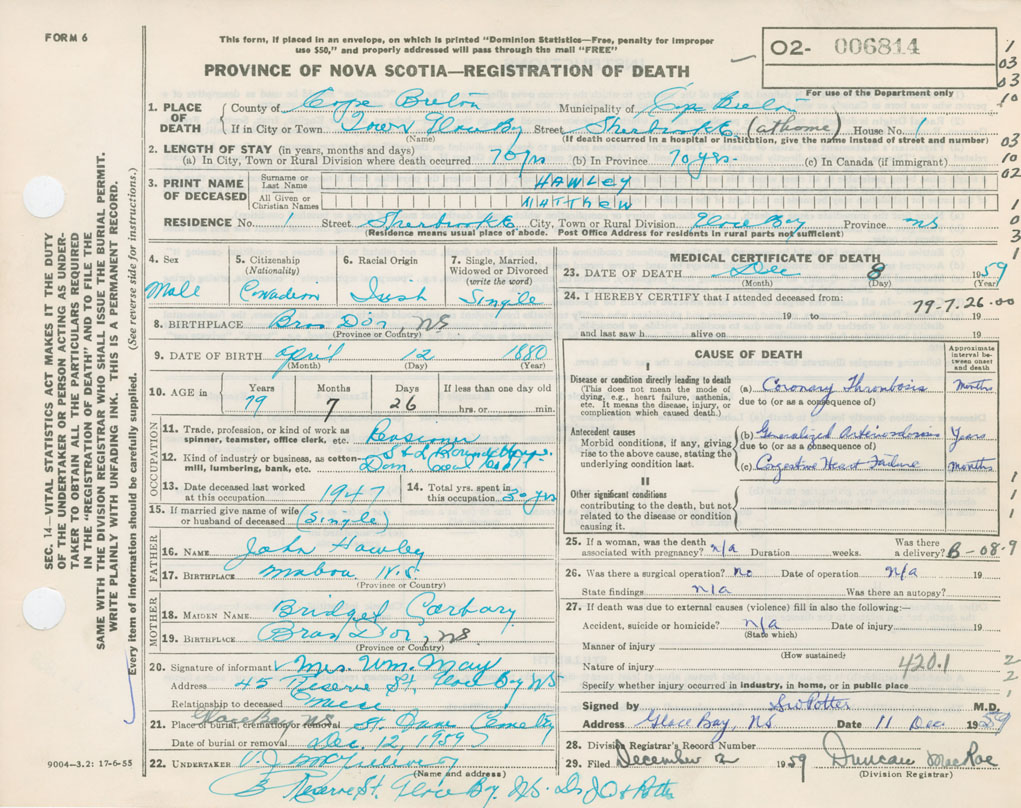 FORM 6
This form, if placed in an envelope, on which is printed "Dominion Statistics—Free, penalty for improper
use $50," and properly addressed will pass through the mail "FREE"
O2- 006814
PROVINCE OF NOVA SCOTIA—REGISTRATION OF DEATH
For use of the Department only
1
03
03
10
03
10
02
1
0
3
1
1. PLACE OF DEATH
County of Cape Breton Municipality of Cape Breton
If in City or Town Town Glace Bay Street Sherbrooke (at home) House No. 1
(Name) (If death occurred in a hospital or institution, give the name instead of street and number)
2. LENGTH OF STAY (in years, months and days)
(a) In City, Town or Rural Division where death occurred 70 yrs (b) In Province 70 yrs. (c) In Canada (if immigrant)
3. PRINT NAME OF DECEASED
Surname or Last Name HAWLEY
All Given or Christian Names MATTHEW
RESIDENCE No. 1 Street Sherbrooke City, Town or Rural Division Glace Bay Province NS
(Residence means usual place of abode. Post Office Address for residents in rural parts not sufficient)
4. Sex
Male
5. Citizenship
(Nationality)
Canadian
6. Racial Origin
Irish
7. Single, Married,
Widowed or Divorced
(write the word)
Single
8. BIRTHPLACE Bras D'or, NS
(Province or Country)
9. DATE OF BIRTH April 12 1880
(Month) (Day) (Year)
10. AGE in
Years Months Days If less than one day old
79 7 26 hrs. or min.
OCCUPATION
11. Trade, profession, or kind of work as
spinner, teamster, office clerk, etc. Pensioner
12. Kind of industry or business, as cotton-
mill, lumbering, bank, etc. Dom. Coal
13. Date deceased last worked
at this occupation 1947
14. Total yrs. spent in
this occupation 30 yrs
15. If married give name of wife
or husband of deceased (Single)
FATHER
16. NAME John Hawley
17. BIRTHPLACE Mabou N.S.
(Province or Country)
MOTHER
18. MAIDEN NAME Bridget Carbary
19. BIRTHPLACE Bras D'or, NS
(Province or Country)
20. Signature of informant Mrs. Wm. May
Address 45 Reserve St. Glace Bay NS
Relationship to deceased niece
Glace Bay NS
21. Place of burial, cremation or removal St. Cemetery
Date of burial or removal Dec. 12, 1959
22. UNDERTAKER V.J.
(Name and address)
Reserve St. Glace Bay, N.S.
9004—3.2: 17-6-55
MEDICAL CERTIFICATE OF DEATH
23. DATE OF DEATH Dec 8 1959
(Month) (Day) (Year)
24. I HEREBY CERTIFY that I attended deceased from: 79-7-26-00
19 to 19
and last saw h alive on 19
CAUSE OF DEATH
Approximate
interval be-
tween onset
and death
I
Disease or condition directly leading to death
(This does not mean the mode of
dying, e.g., heart failure, asthenia,
etc. It means the disease, injury, or
complication which caused death.)
(a) Coronary Thrombosis Months
due to (or as a consequence of)
Antecedent causes
Morbid conditions, if any, giving
rise to the above cause, stating the
underlying condition last.
(b) Generalized Arteriosclerosis Years
due to (or as a consequence of)
(c) Congestive Heart Failure months
II
Other significant conditions
contributing to the death, but not
related to the disease or condition
causing it.
1
1
1
25. If a woman, was the death
associated with pregnancy? n/a Duration weeks. Was there
a delivery? B-08-9
26. Was there a surgical operation? no Date of operation n/a 19
State findings n/a Was there an autopsy?
27. If death was due to external causes (violence) fill in also the following:—
Accident, suicide or homicide? n/a Date of injury 19
(State which)
Manner of injury
(How sustained)
Nature of injury 420.1
2
2
1
Specify whether injury occurred in industry, in home, or in public place
Signed by SW Potter M.D.
Address Glace Bay, NS Date 11 Dec 1959
28. Division Registrar's Record Number
29. Filed December 1959 Duncan MacRae
(Division Registrar)
SEC. 14—VITAL STATISTICS ACT MAKES IT THE DUTY
OF THE UNDERTAKER OR PERSON ACTING AS UNDER-
TAKER TO OBTAIN ALL THE PARTICULARS REQUIRED
IN THE "REGISTRATION OF DEATH" AND TO FILE THE
SAME WITH THE DIVISION REGISTRAR WHO SHALL ISSUE THE BURIAL PERMIT.
WRITE PLAINLY WITH UNFADING INK. THIS IS A PERMANENT RECORD.
Every item of information should be carefully supplied. (See reverse side for instructions.)